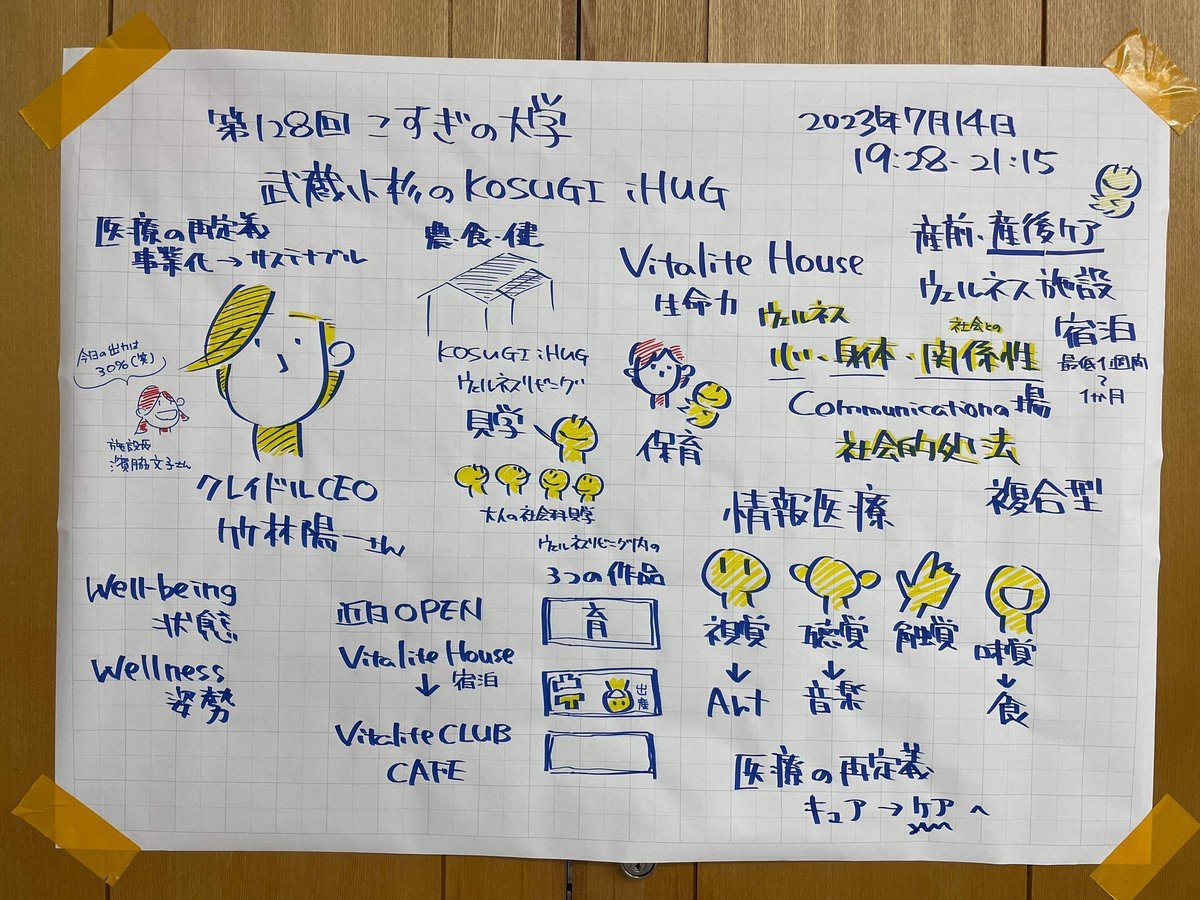 第128回 こすぎの大学
2023年7月14日
19:28-21:15
武蔵小杉のKOSUGI iHUG
医療の再定義
事業化→サステナブル
今日の出力は
30%(笑)
施設長
濱脇文子さん
クレイドルCEO
竹林陽一さん
Well-being
状態
Wellness
姿勢
農・食・健
KOSUGI iHUG
ウェルネスリビング
見学
大人の社会科見学
近日OPEN
Vitalite House
↓ 宿泊
Vitalite CLUB
CAFE
ウェルネスリビング内の
3つの作品
育
出産
Vitalite House
生命力
保育
産前、産後ケア
ウェルネス施設
宿泊
最低1週間
〜
1か月
ウェルネス
社会との
心・身体・関係性
Communicationの場
社会的処法
複合型
情報医療
視覚 聴覚 触覚 味覚
↓ ↓ ↓
Art 音楽 食
医療の再定義
キュア→ケアへ